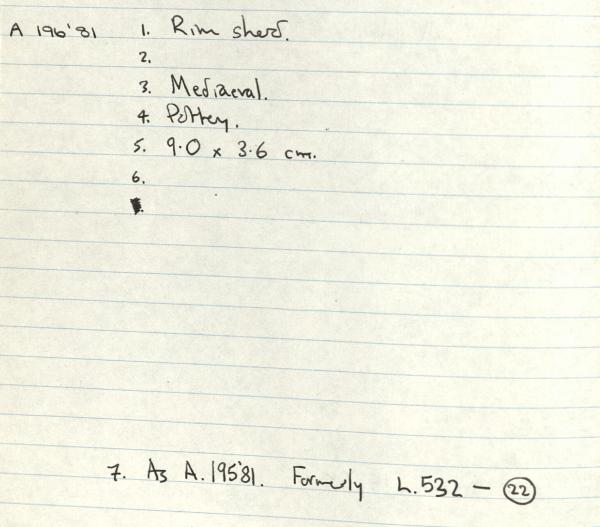 A 196'81 1. Rim sherd.
2.
3. Mediaeval.
4. Pottery.
5. 9.0 x 3.6 cm.
6.
7. As A.195'81. Formerly L.532 — 22